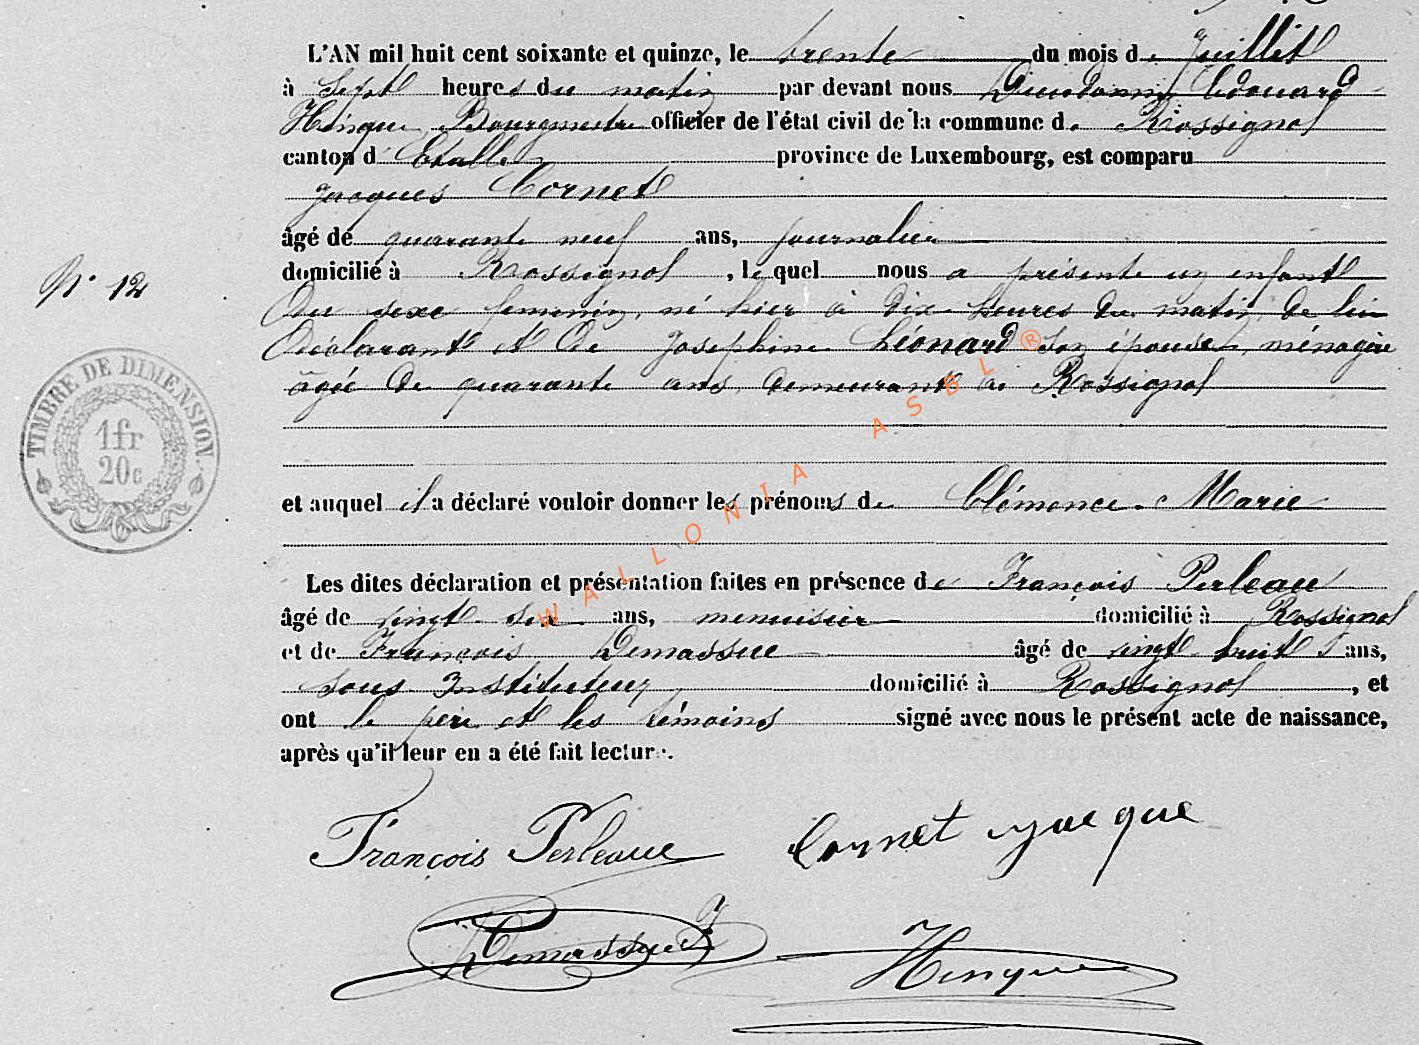 L'AN mil huit cent soixante et quinze, le trente du mois de Juillet
à Sept heures du matin par devant nous Dieudonné Edouard
Hinque, Bourgmestre officier de l'état civil de la commune de Rossignol
canton d'Etalle province de Luxembourg, est comparu
Jacques Cornet
âgé de quarante neuf ans, journalier
domicilié à Rossignol, lequel nous a présenté un enfant
Du sexe feminin, né hier à dix heures du matin, de lui
Déclarant et de Josephine Léonard son épouse, ménagère
âgée de quarante ans, demeurant à Rossignol
et auquel il a déclaré vouloir donner les prénoms de Clémence Marie
Les dites déclaration et présentation faites en présence de François Perleau
âgé de vingt six ans, menuisier domicilié à Rossignol
et de François Demassue âgé de vingt huit ans,
sous Instituteur domicilié à Rossignol, et
ont le père et les témoins signé avec nous le présent acte de naissance,
après qu'il leur en a été fait lecture.
N° 12
TIMBRE DE DIMENSION
1 fr
20 c
WALLONIA ASBL ®
François Perleaue Cornet jacque
Demassue F Hinque